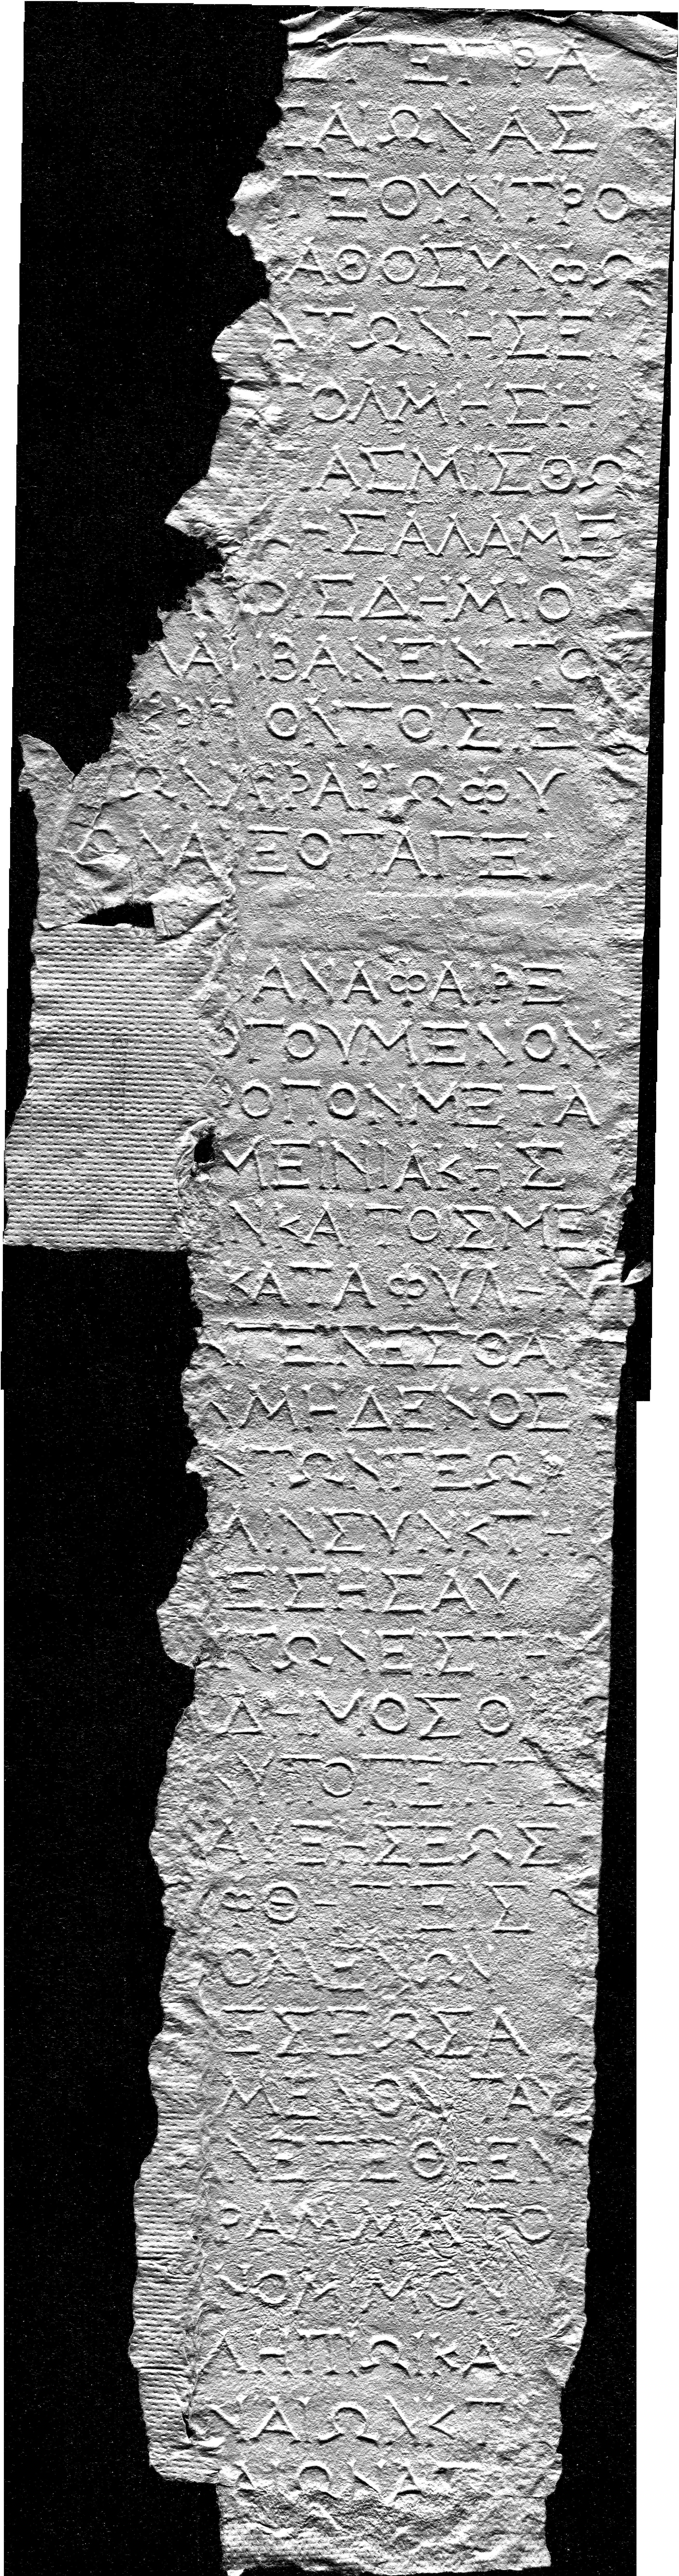 ΕΓΡΑ
ΑΙΩΝΑΣ
ΤΕΟΥΝΤΡΟ
ΑΘΟΣΥΝΦΩ
ΑΤΩΝΗΣΕ
ΤΟΛΜΗΣΗ
ΑΣΜΙΣΘΩ
ΗΣΑΛΑΜΕ
ΟΙΣΔΗΜΙΟ
ΛΑΜΒΑΝΕΙΝΤΟ
ΟΝΤΟΣΕ
ΩΝΑΡΑΡΙΩΦΥ
ΩΝΑΞΟΠΑΓΕΙ
ΑΝΑΦΑΙΡΕ
ΟΓΟΥΜΕΝΟΝ
ΡΟΠΟΝΜΕΤΑ
ΜΕΙΝΙΑΚΗΣ
ΝΚΑΤΟΣΜΕ
ΚΑΤΑΦΥΛΗΝ
ΓΕΝΕΣΘΑΙ
ΜΗΔΕΝΟΣ
ΝΤΩΝΓΕΩ
ΛΙΝΣΥΝΚΤΗ
ΕΙΣΗΣΑΥ
ΤΩΝΕΣΤΗ
ΔΗΜΟΣΟ
ΥΤΟΕΠΙ
ΑΥΞΗΣΕΩΣ
ΦΘΗΤΕΙΣ
ΟΛΕΧΩΝ
ΗΣΕΩΣΑ
ΜΕΝΟΝΤΑΥ
ΝΕΤΕΘΗΕΝ
ΡΑΜΜΑΤΟ
ΝΟΜΜΟΥ
ΛΗΠΩΚΑ
ΝΑΙΩΛΚΤ
ΑΙΩΝΑ